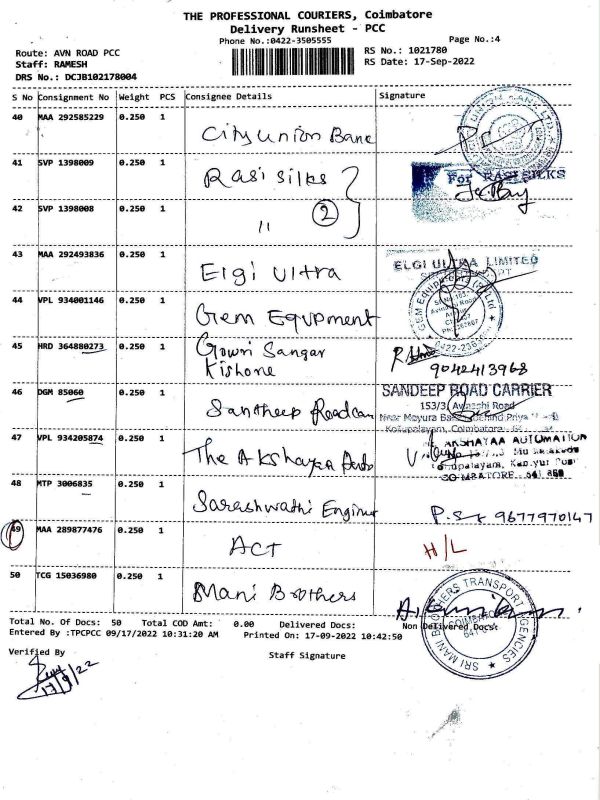 THE PROFESSIONAL COURIERS, Coimbatore
Delivery Runsheet - PCC
Phone No.:0422-3505555
Page No.:4
Route: AVN ROAD PCC
RS No.: 1021780
Staff: RAMESH
RS Date: 17-Sep-2022
DRS No.: DCJB102178004
S No Consignment No Weight PCS Consignee Details Signature
40 MAA 292585229 0.250 1 City Union Bank
41 SVP 1398009 0.250 1 Rasi Silks
For RASI SILKS
42 SVP 1398008 0.250 1 " 2
43 MAA 292493836 0.250 1 Elgi Ultra
ELGI ULTRA LIMITED
44 VPL 934001146 0.250 1 Gem Equpment
GEM Equipments (P) Ltd
45 HRD 364880273 0.250 1 Gowri Sangar
Kishore
9042413968
46 DGM 85060 0.250 1 Santheep Roadcarr
SANDEEP ROAD CARRIER
153/3, Avinashi Road
Near Mayura Behind Priya
Kollupalayam, Coimbatore
47 VPL 934205874 0.250 1 The Akshayaa
AKSHAYAA AUTOMATION
COIMBATORE
48 MTP 3006835 0.250 1 Sarashwathi Enginer
9677970147
49 MAA 289877476 0.250 1 ACT H/L
50 TCG 15036980 0.250 1 Mani Brothers
SRI MANI BROTHERS TRANSPORT AGENCIES
COIMBATORE
Total No. Of Docs: 50 Total COD Amt: 0.00 Delivered Docs: Non Delivered Docs:
Entered By :TPCPCC 09/17/2022 10:31:20 AM Printed On: 17-09-2022 10:42:50
Verified By
Staff Signature
17/9/22